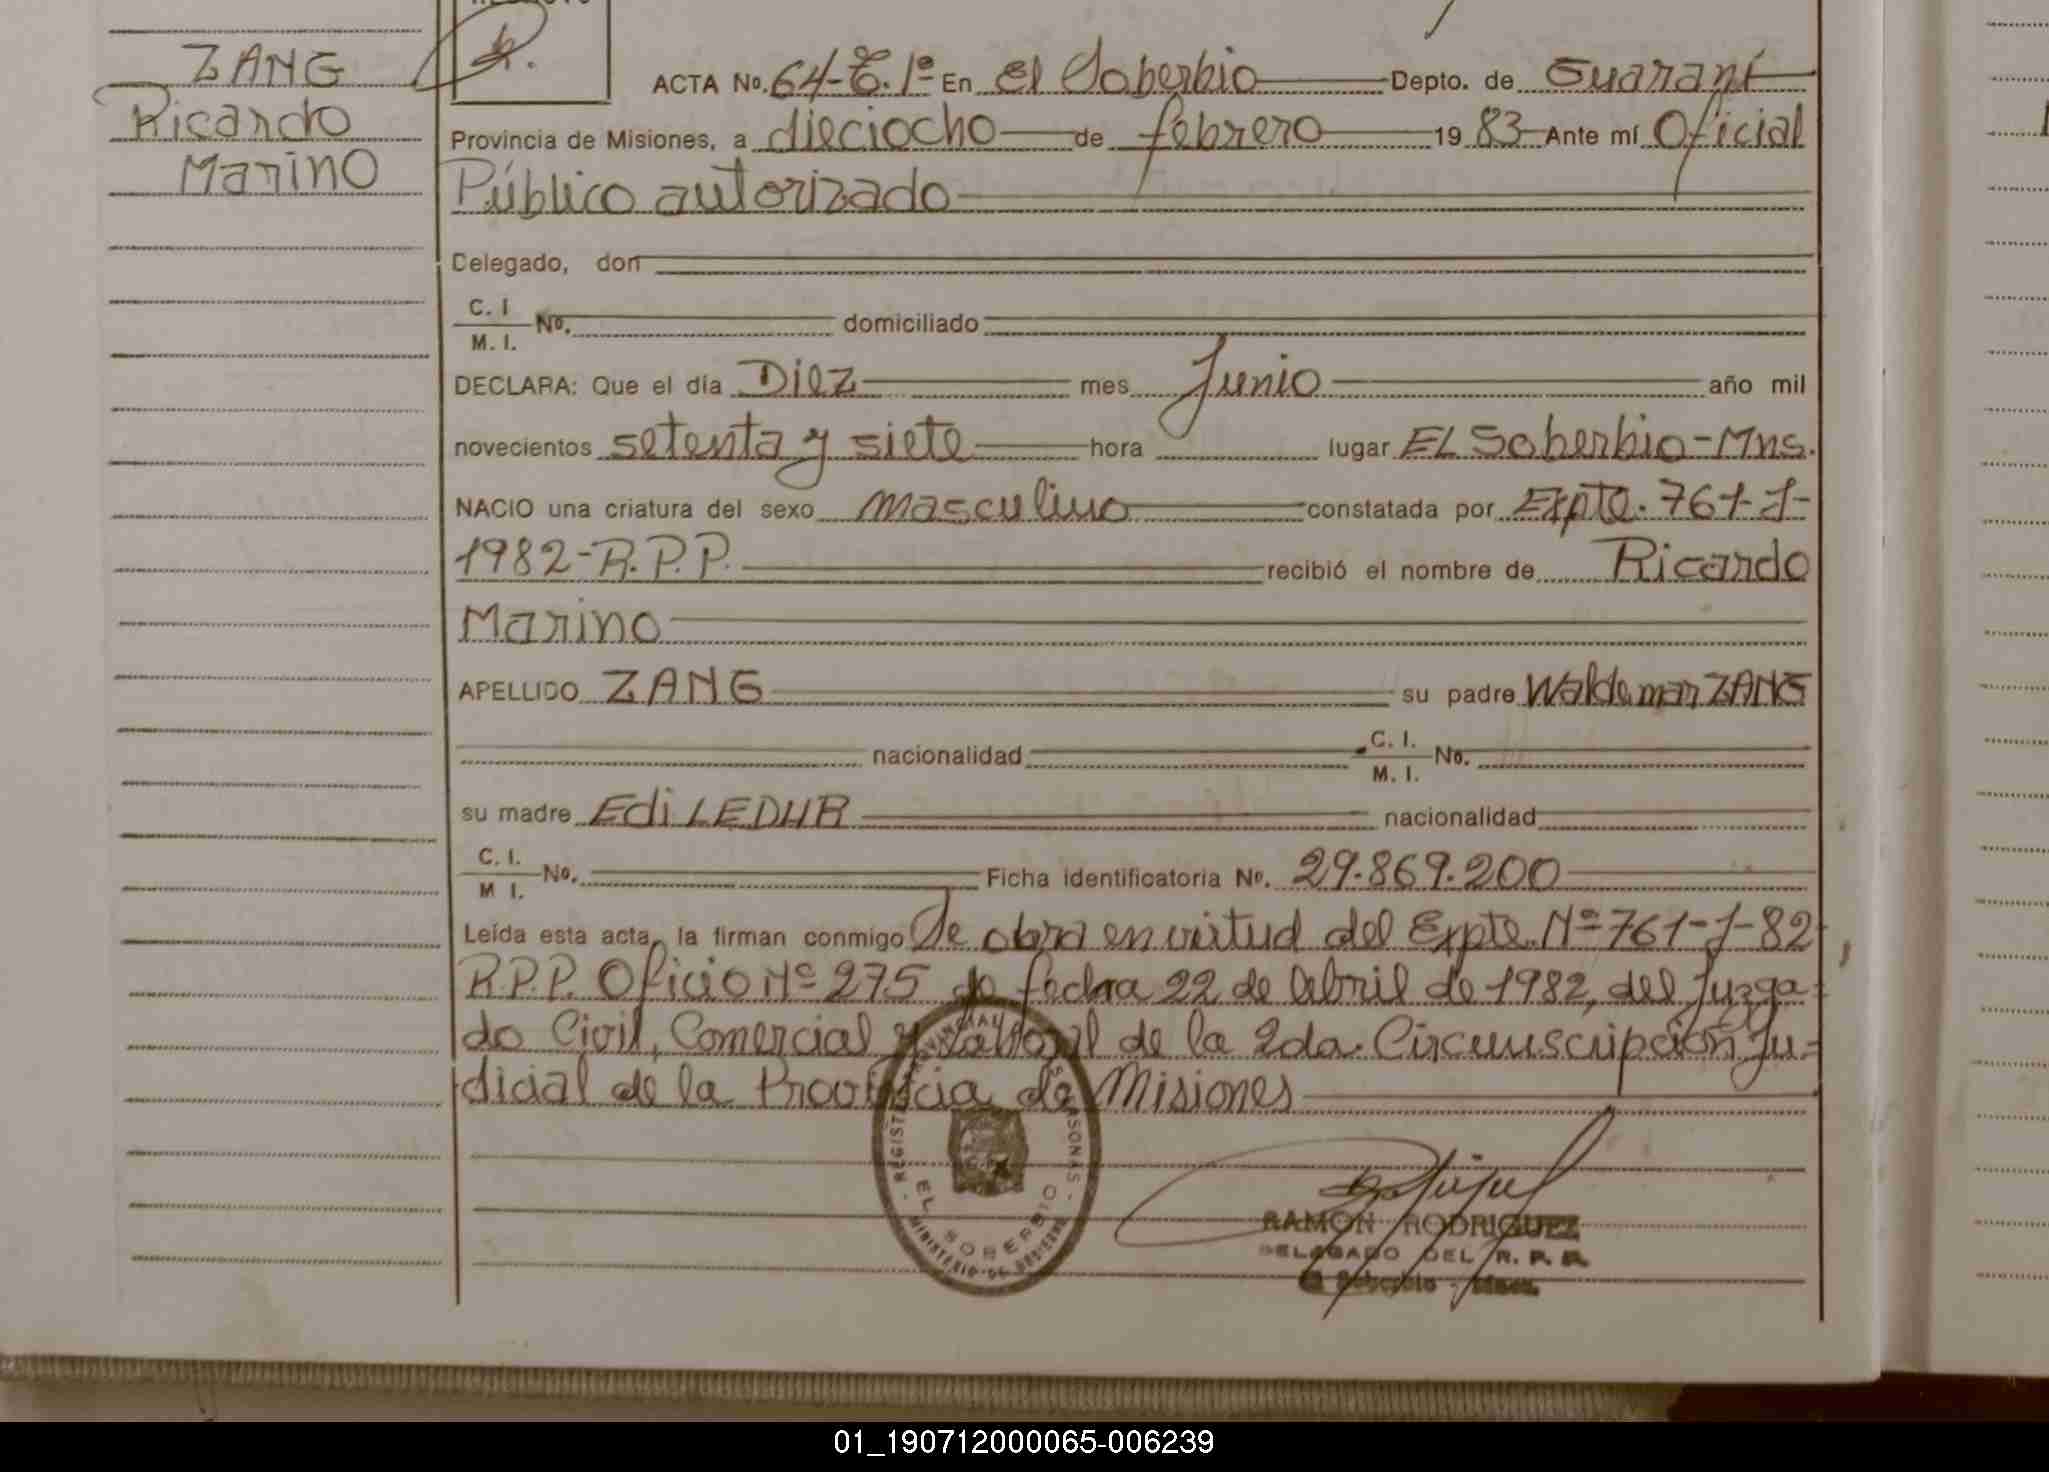 ZANG
Ricardo
Marino
ACTA No. 64-T.1º En El Soberbio Depto. de Guaraní
Provincia de Misiones, a dieciocho de febrero 1983 Ante mí Oficial
Público autorizado
Delegado, don
C. I.
M. I. No. domiciliado
DECLARA: Que el día Diez mes Junio año mil
novecientos setenta y siete hora lugar EL Soberbio-Mns.
NACIO una criatura del sexo masculino constatada por Expte. 761-J-
1982-R.P.P. recibió el nombre de Ricardo
Marino
APELLIDO ZANG su padre Waldemar ZANG
nacionalidad C. I. M. I. No.
su madre Edi LEDUR nacionalidad
C. I.
M I. No. Ficha identificatoria No. 29.869.200
Leída esta acta, la firman conmigo Se obra en virtud del Expte. Nº 761-J-82,
R.P.P. Oficio Nº 275 de fecha 22 de Abril de 1982, del Juzga-
do Civil, Comercial y Laboral de la 2da. Circunscripción Ju-
dicial de la Provincia de Misiones
REGISTRO PROVINCIAL PERSONAS
EL SOBERBIO
MINISTERIO DE GOBIERNO
RAMON RODRIGUEZ
DELEGADO DEL R. P. P.
El Soberbio - Mnes.
01_190712000065-006239